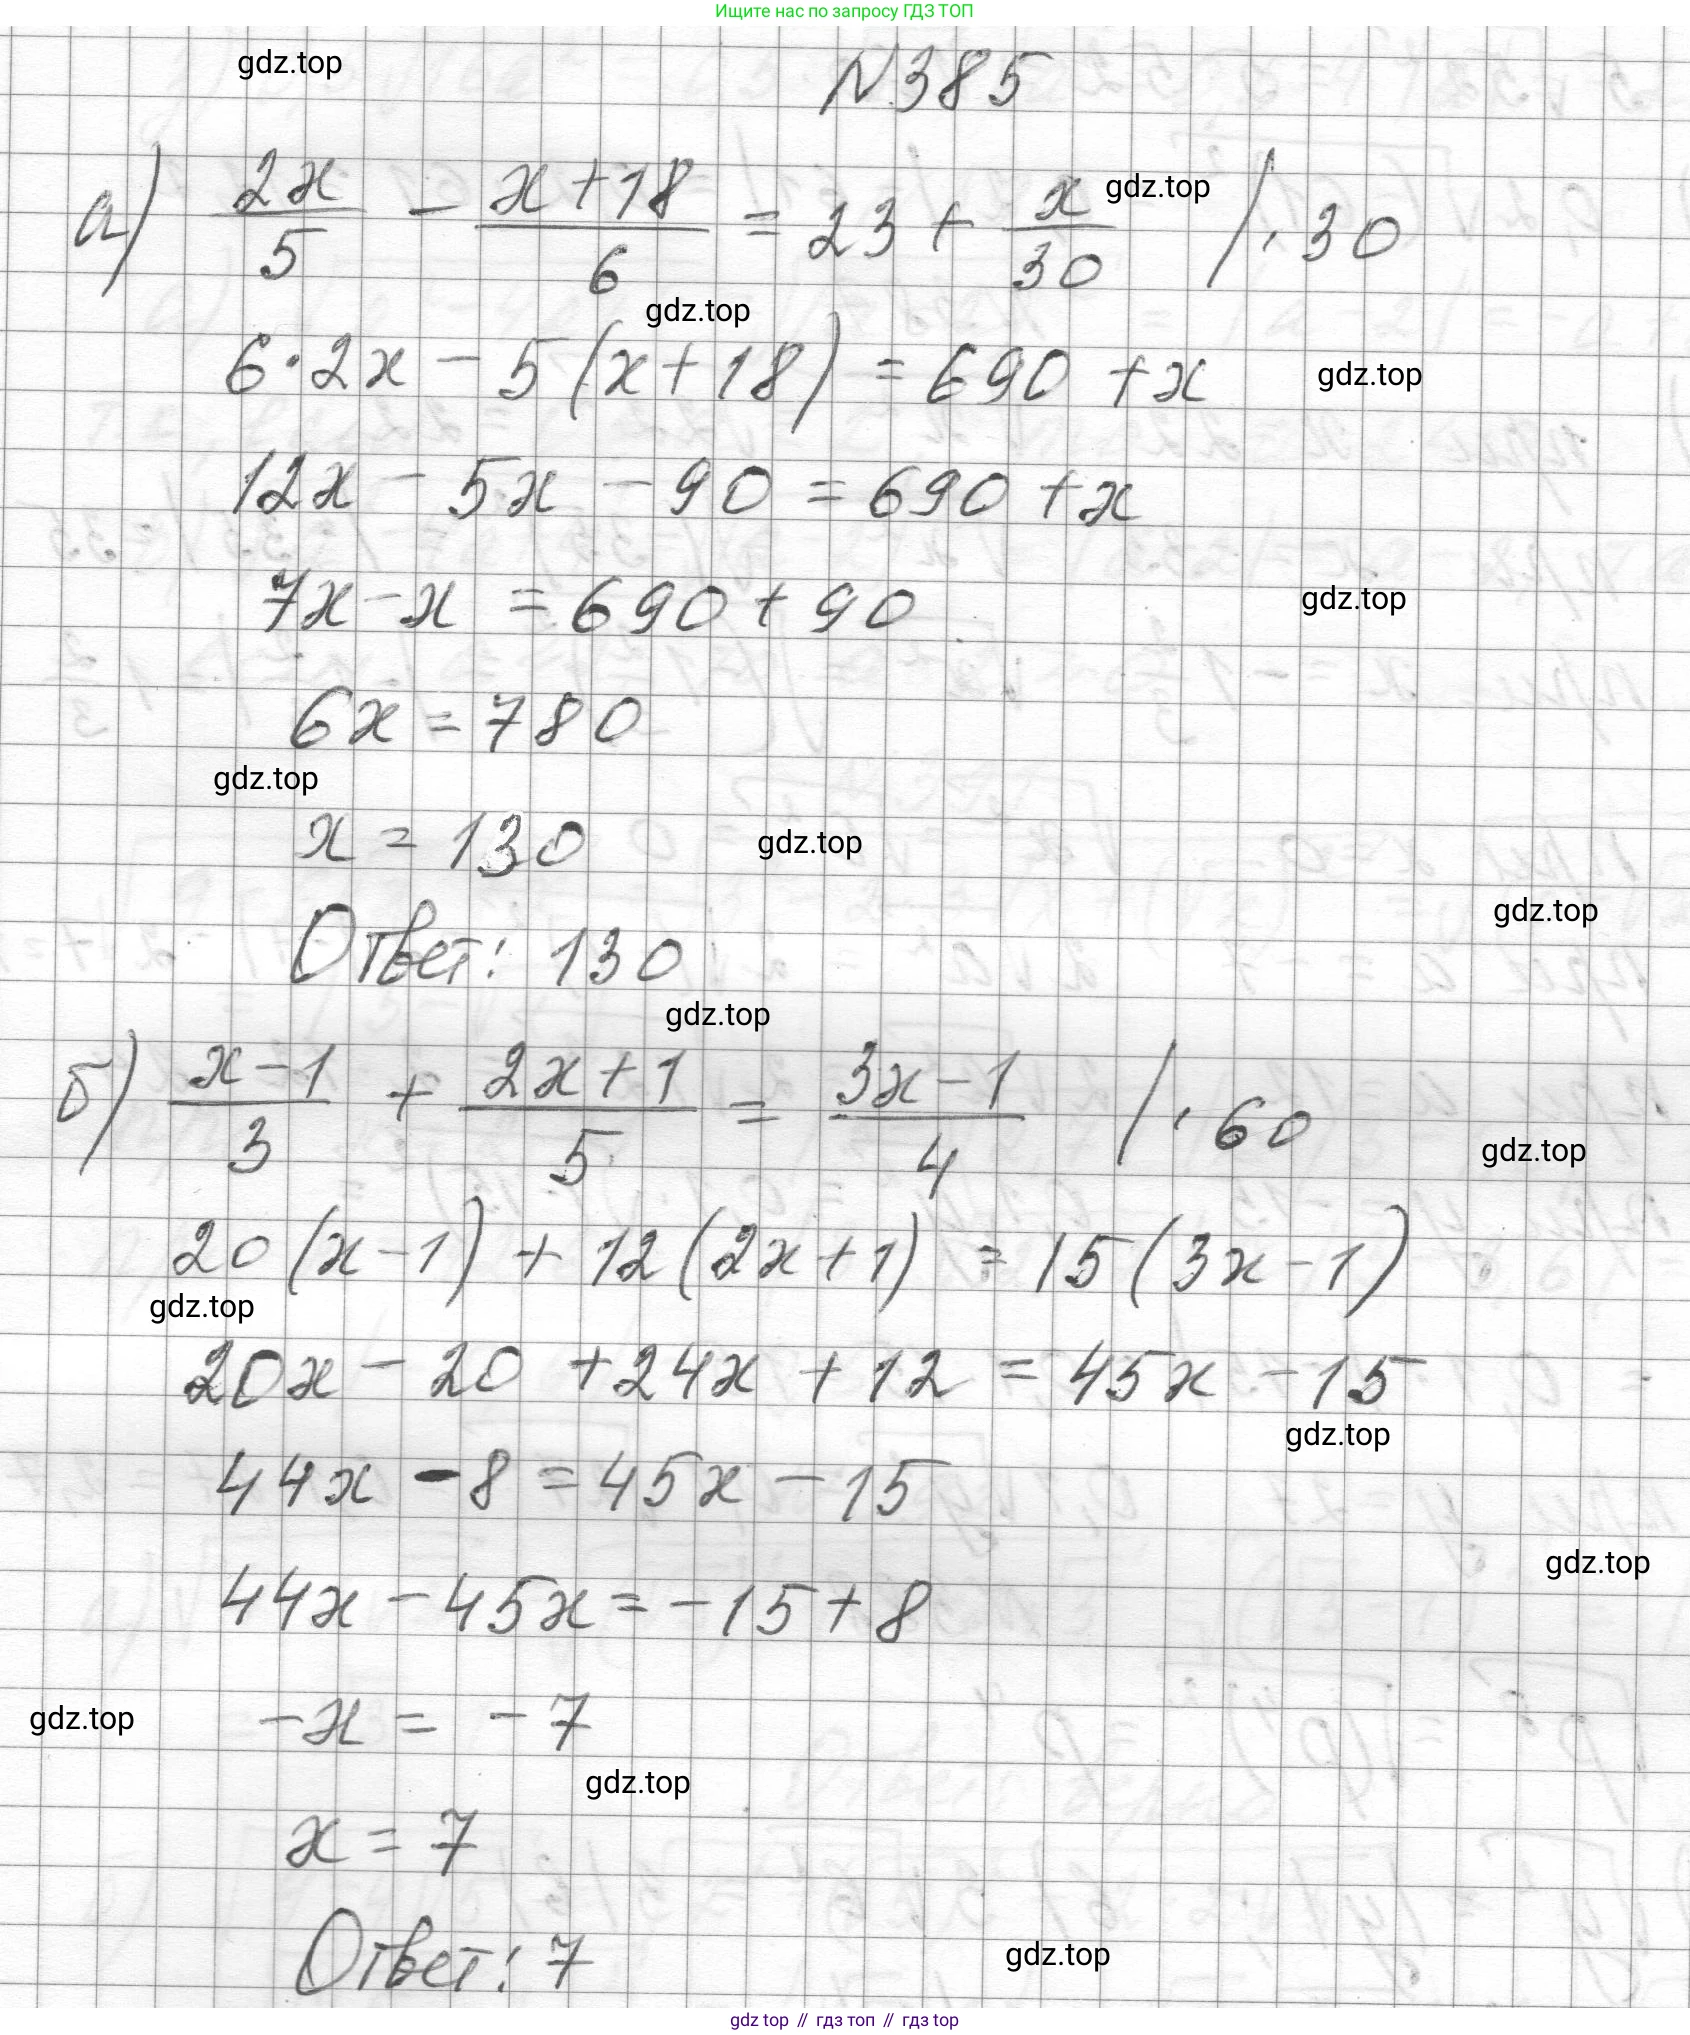 Ищите нас по запросу ГДЗ ТОП
gdz.top
№385
а) 2x/5 - (x+18)/6 = 23 + x/30 /·30
gdz.top
gdz.top
6·2x - 5(x+18) = 690 + x
gdz.top
12x - 5x - 90 = 690 + x
7x - x = 690 + 90
gdz.top
6x = 780
gdz.top
x = 130
gdz.top
gdz.top
Ответ: 130
gdz.top
б) (x-1)/3 + (2x+1)/5 = (3x-1)/4 /·60
gdz.top
20(x-1) + 12(2x+1) = 15(3x-1)
gdz.top
20x - 20 + 24x + 12 = 45x - 15
gdz.top
44x - 8 = 45x - 15
gdz.top
44x - 45x = -15 + 8
gdz.top
-x = -7
gdz.top
x = 7
gdz.top
Ответ: 7
gdz top // гдз топ // гдз top